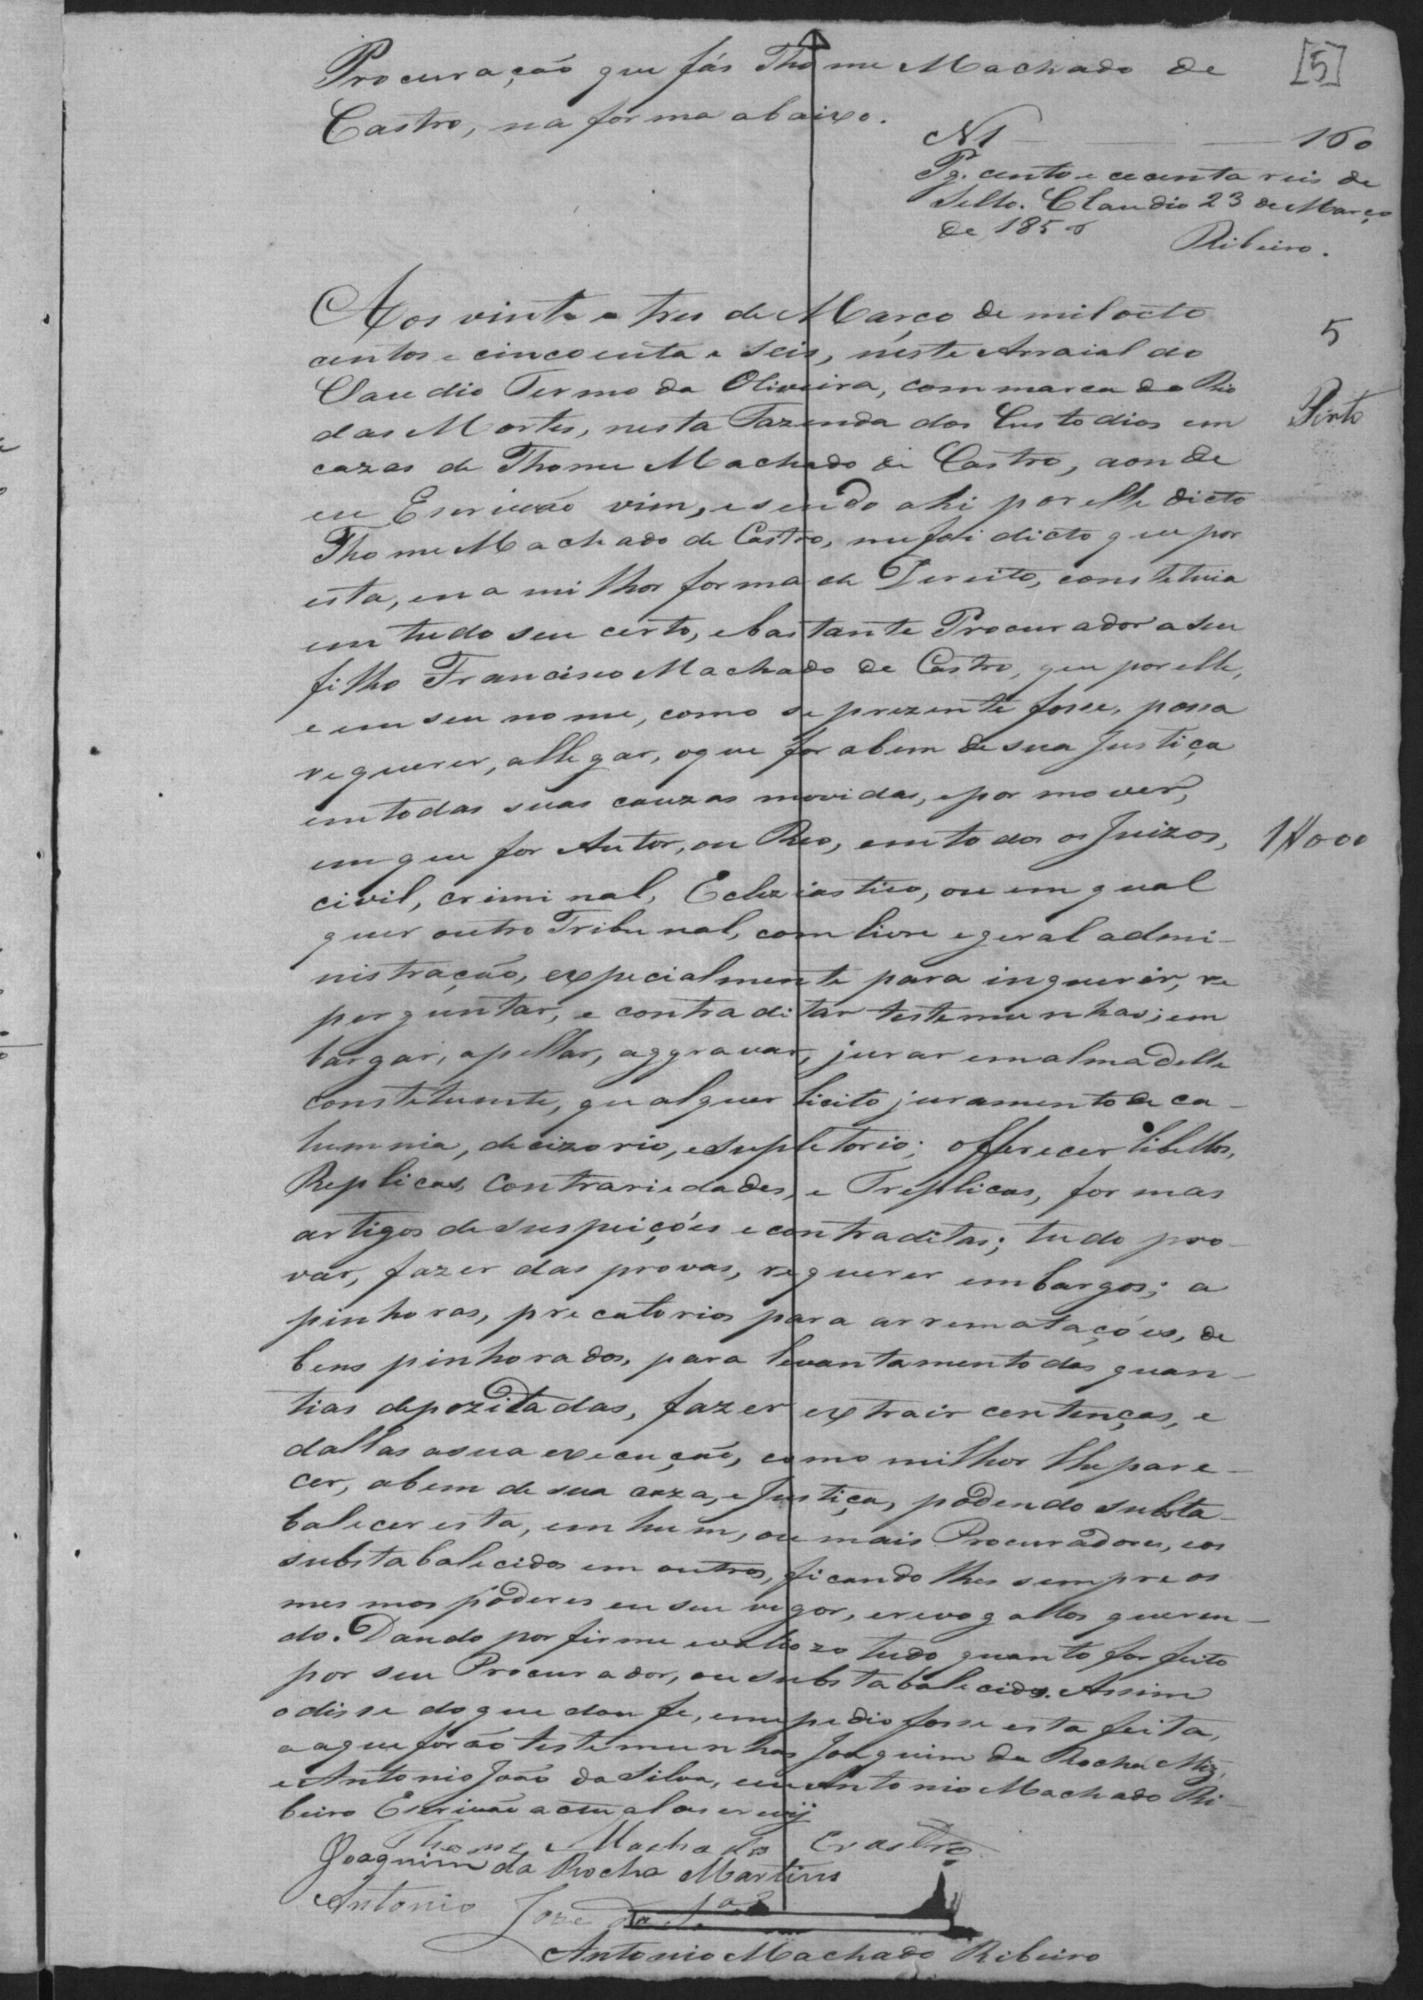 [5]
Procuração que fás Thome Machado de
Castro, na forma abaixo.
N1 — — — 160
Pg. cento e cecenta reis de
Sello. Claudio 23 de Março
de 1856
Ribeiro.
Aos vinte e tres de Março de mil octo
centos e cincoenta e seis, neste Arraial do
Claudio Termo da Oliveira, commarca do Rio
das Mortes, nesta Fazenda dos Custodios em
cazas de Thome Machado de Castro, aonde
eu Escrivão vim, e sendo ahi por elle dicto
Thome Machado de Castro, me foi dicto que por
esta, e na milhor forma de Dereito, constetuia
em tudo seu certo, e bastante Procurador a seu
filho Francisco Machado de Castro, que por elle,
e em seu nome, como se prezente fosse, possa
requerer, allegar, o que for abem de sua Justiça
em todas suas cauzas movidas, e por mover,
em que for Autor, ou Reo, em todos os Juizos,
civil, criminal, Ecleziastico, ou em qual
quer outro Tribunal, com livre e geral admi-
nistração, expecialmente para inquerir, re
perguntar, e contraditar testemunhas; em
bargar, apellar, aggravar, jurar em alma delle
constetuinte, qualquer licito juramento de ca-
lumnia, decizorio, e supletorio; offerecer libellos,
Replicas, Contrariedades, e Treplicas, formas
artigos de suspeições e contraditas; tudo pro-
var, fazer das provas, requerer embargos; a
pinhoras, precatorios para arremataçóes, de
bens pinhorados, para levantamento das quan-
tias depozitadas, fazer extrair centenças, e
dallas a sua execução, como milhor lhe pare-
cer, abem de sua caza, e Justiça, podendo substa-
balecer esta, em hum, ou mais Procuradores, e os
substabalecidos em outros, ficando lhes sempre os
mesmos poderes em seu vigor, e revogallos queren-
do. Dando por firme e valiozo tudo quanto for feito
por seu Procurador, ou substabalecidos. Assim
o disse do que dou fe, e me pedio fosse esta feita,
a que forão testemunhas Joaquim da Rocha Miz,
e Antonio João da Silva, eu Antonio Machado Ri-
beiro Escrivão actual o screvij
Thome Machado Crastro
Joaquim da Rocha Martins
Antonio Joze da Sª
Antonio Machado Ribeiro
5
Pinto
1$000